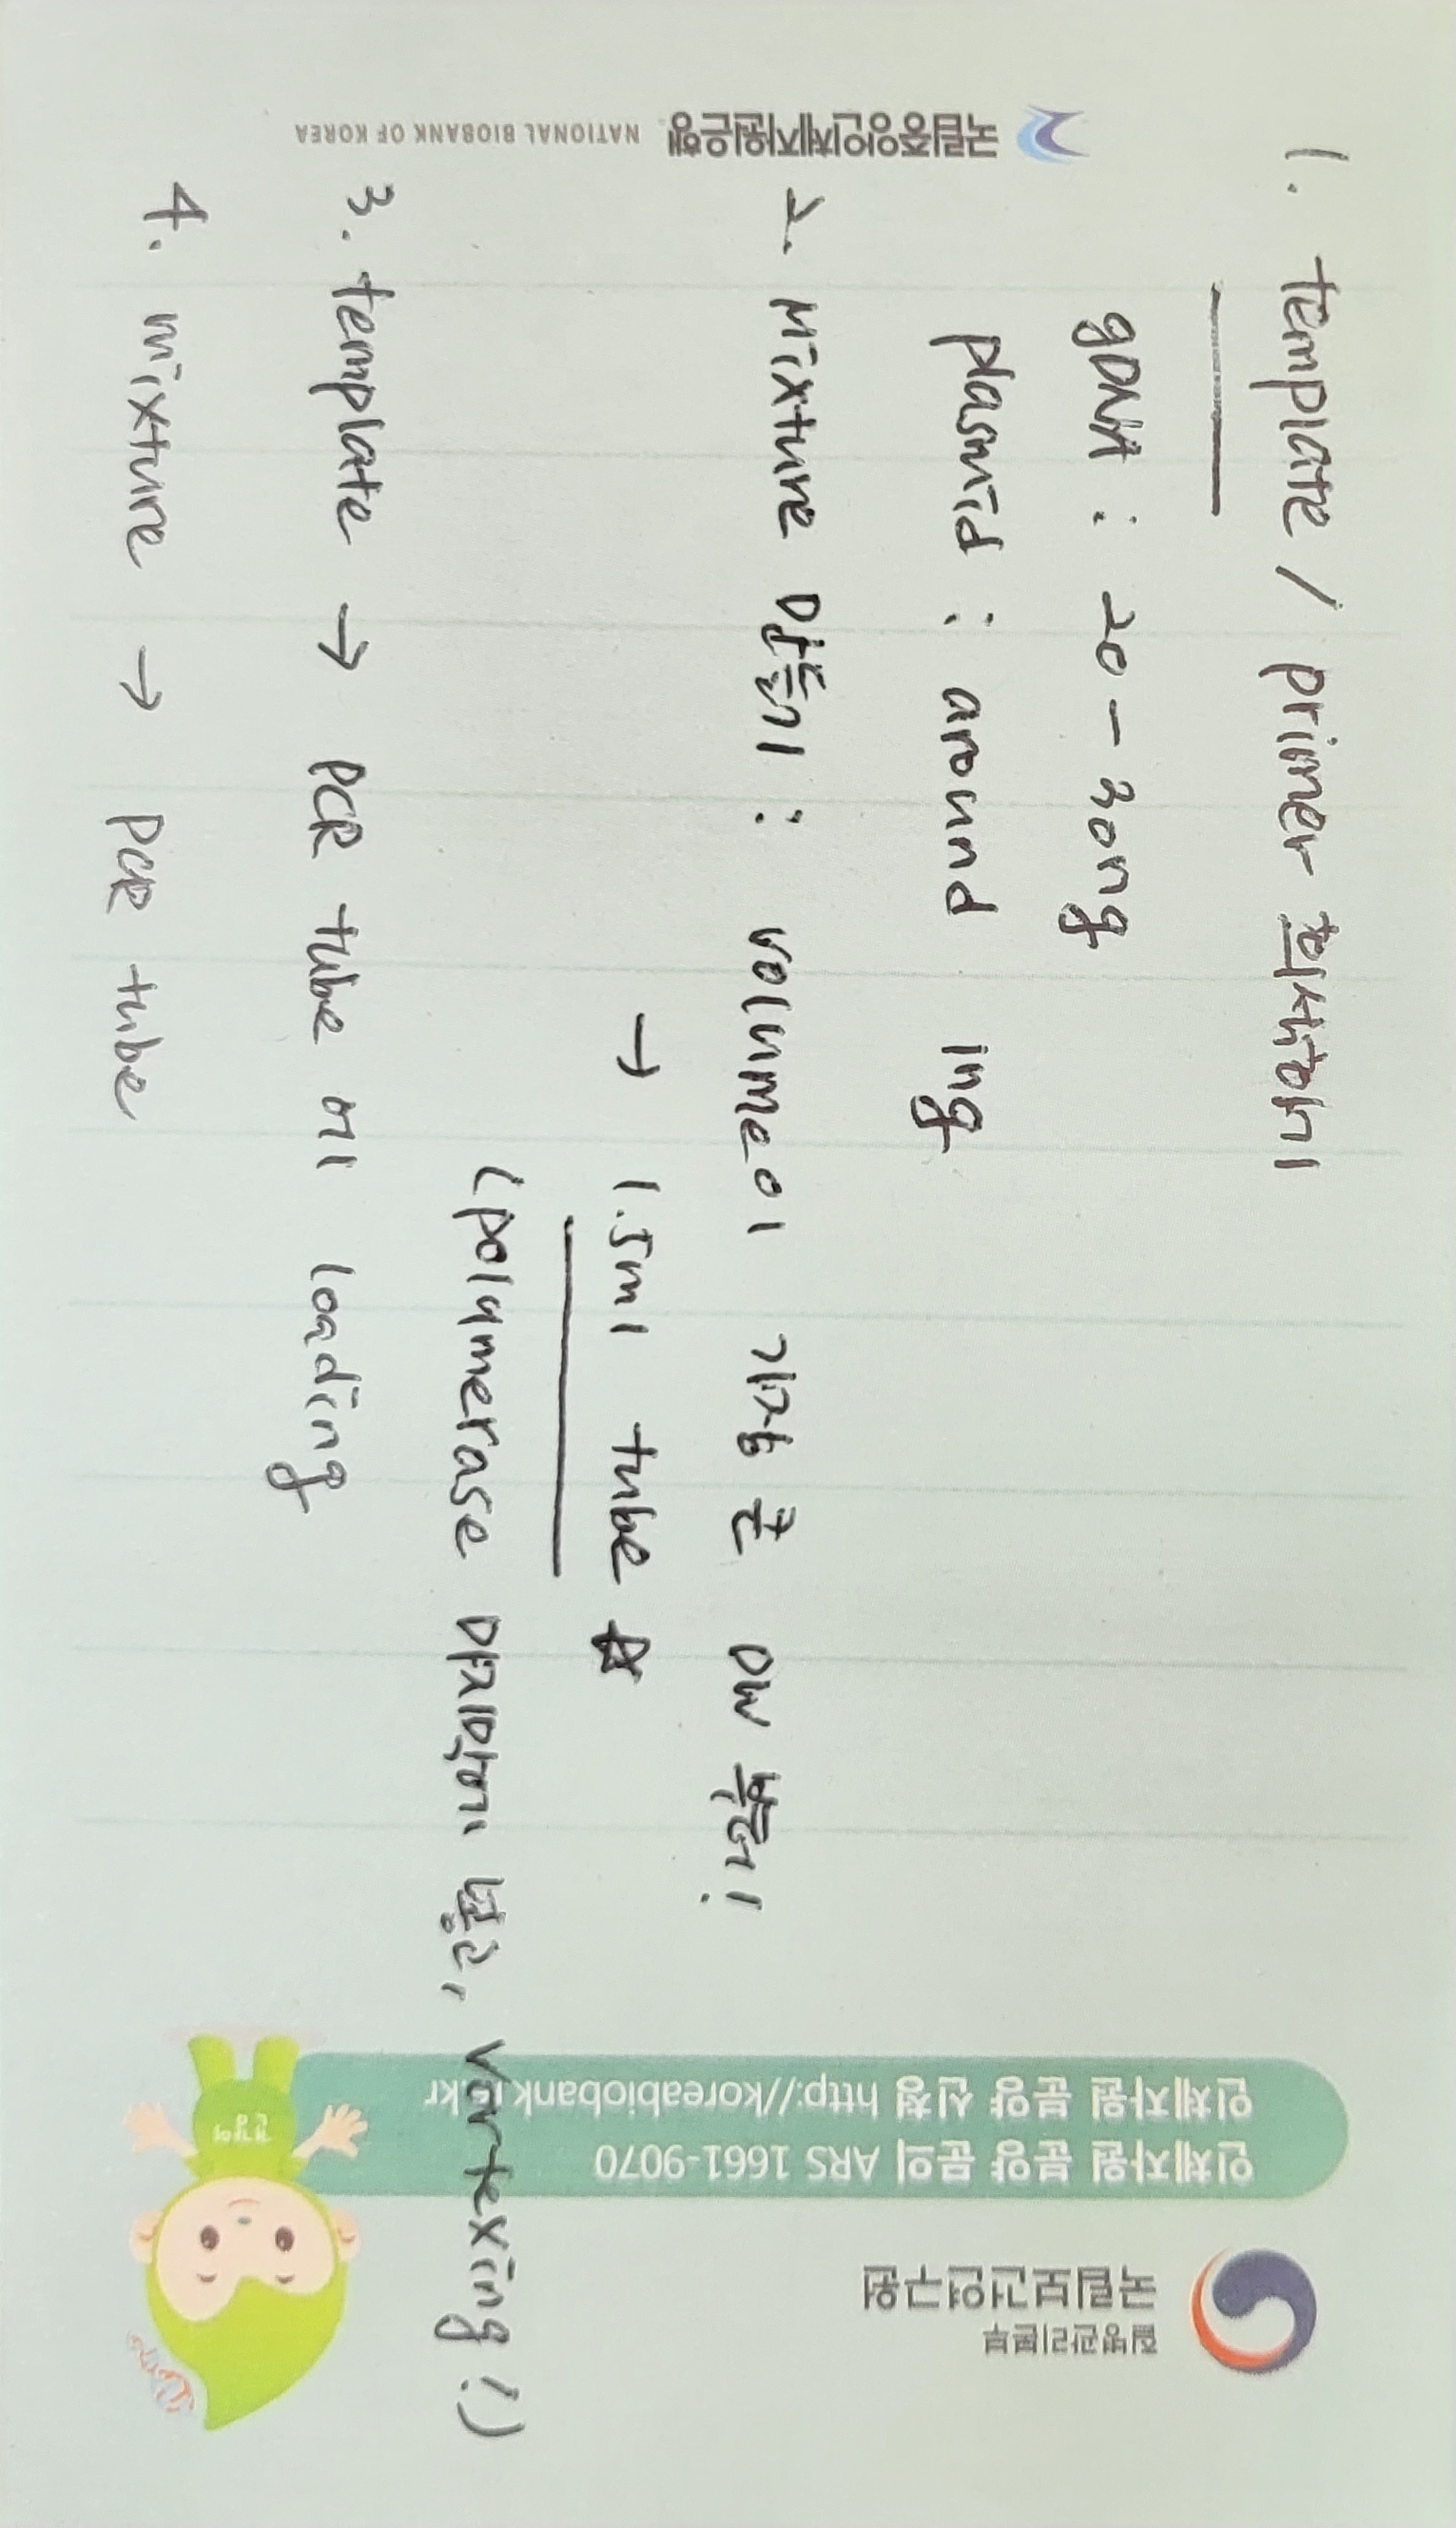 1. template / primer 희석하기
gDNA : 20 - 30ng
plasmid : around 1ng
2. Mixture 만들기 : volume이 가장 큰 DW 부터!
→ 1.5ml tube ☆
(polymerase 마지막에 넣고, vortexing!)
3. template → PCR tube에 loading
4. mixture → PCR tube
질병관리본부
국립보건연구원
인체자원 분양 문의 ARS 1661-9070
인체자원 분양 신청 http://koreabiobank.re.kr
국립중앙인체자원은행 NATIONAL BIOBANK OF KOREA